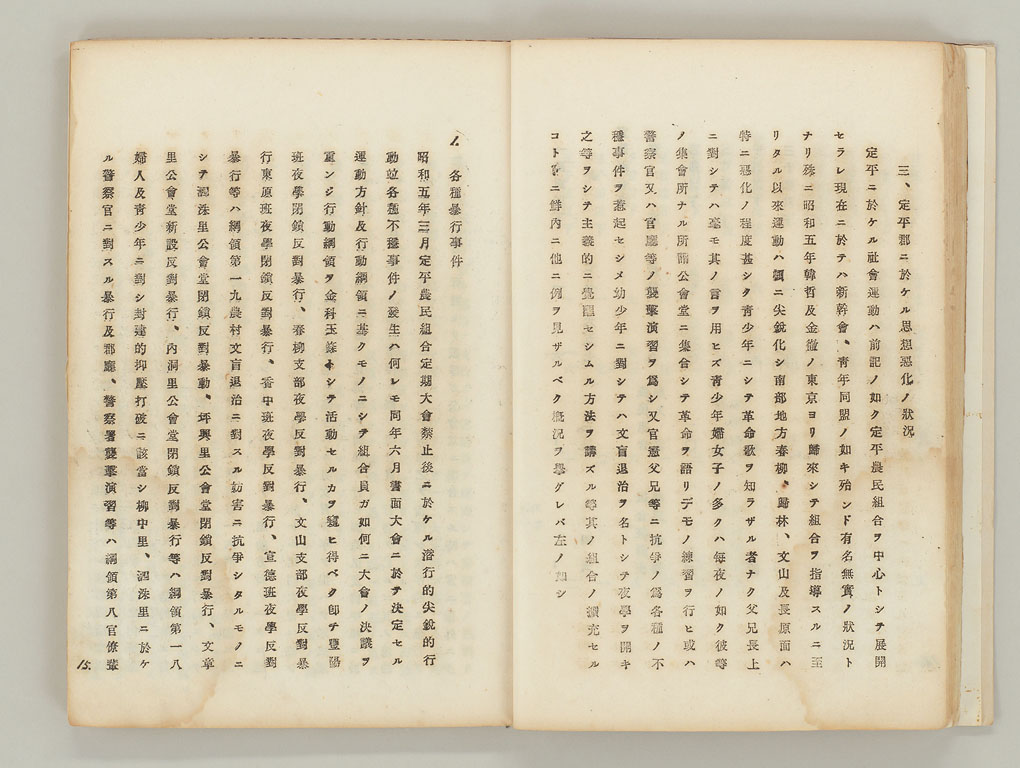 三、定平郡ニ於ケル思想惡化ノ狀況
定平ニ於ケル社會運動ハ前記ノ如ク定平農民組合ヲ中心トシテ展開
セラレ現在ニ於テハ新幹會、靑年同盟ノ如キ殆ンド有名無實ノ狀況ト
ナリ殊ニ昭和五年韓哲及金 ノ東京ヨリ歸來シテ組合ヲ指導スルニ至
リタル以來運動ハ頓ニ尖銳化シ南部地方春柳、歸林、文山及長原面ハ
特ニ惡化ノ程度甚シク靑少年ニシテ革命歌ヲ知ラザル者ナク父兄長上
ニ對シテハ毫モ其ノ言ヲ用ヒズ靑少年婦女子ノ多クハ每夜ノ如ク彼等
ノ集會所ナル所謂公會堂ニ集合シテ革命ヲ語リデモノ練習ヲ行ヒ或ハ
警察官又ハ官廳等ノ襲擊演習ヲ爲シ又官憲父兄等ニ抗爭ノ爲各種ノ不
穩事件ヲ惹起セシメ幼少年ニ對シテハ文盲退治ヲ名トシテ夜學ヲ開キ
之等ヲシテ主義的ニ覺醒セシムル方法ヲ講ズル等其ノ組合ノ擴充セル
コト ニ鮮內ニ他ニ例ヲ見ザルベク槪況ヲ擧グレバ左ノ如シ
1. 各種暴行事件
昭和五年三月定平農民組合定期大會禁止後ニ於ケル潛行的尖銳的行
動竝各種不穩事件ノ發生ハ何レモ同年六月書面大會ニ於テ決定セル
運動方針及行動綱領ニ基クモノニシテ組合員ガ如何ニ大會ノ決議ヲ
重ンジ行動綱領ヲ金科玉條トシテ活動セルカヲ窺ヒ得ベク卽チ豐陽
班夜學閉鎖反對暴行、春柳支部夜學反對暴行、文山支部夜學反對暴
行東原班夜學閉鎖反對暴行、香中班夜學反對暴行、宣德班夜學反對
暴行等ハ綱領第一九農村文盲退治ニ對スル妨害ニ抗爭シタルモノニ
シテ 洙里公會堂閉鎖反對暴動、坪興里公會堂閉鎖反對暴行、文章
里公會堂新設反對暴行、內洞里公會堂閉鎖反對暴行等ハ綱領第一八
婦人及靑少年ニ對シ封建的抑壓打破ニ該當シ柳中里、 洙里ニ於ケ
ル警察官ニ對スル暴行及郡廳、警察署襲擊演習等ハ綱領第八官僚輩
15.